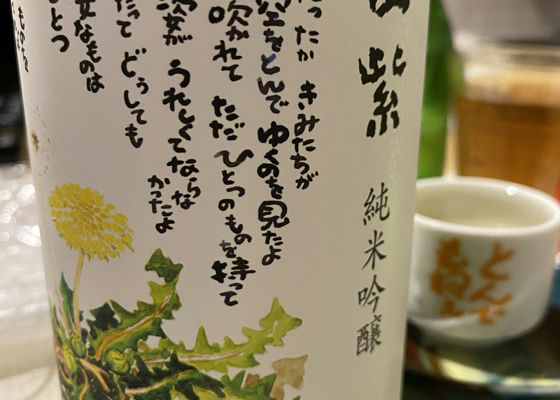 紫
純米吟醸
ったか きみたちが
空をとんで ゆくのを見たよ
吹かれて ただ ひとつのものを持って
姿が うれしくてならな
かったよ
だって どうしても
要なものは
とつ
とんで
もねえ